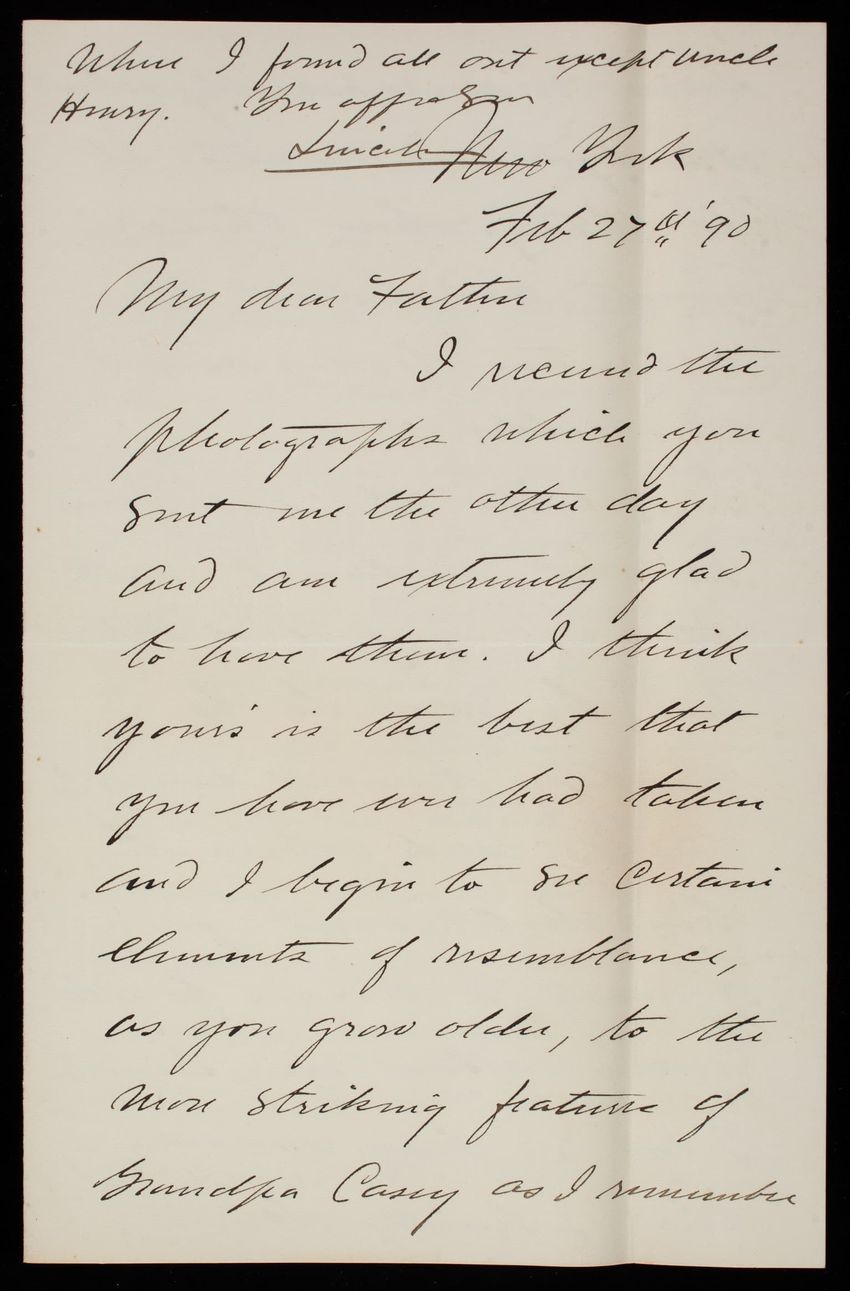 where I found all out except Uncle
Henry. Your aff. Son
Lincoln
New York
Feb 27th '90
My dear Father
I received the
photographs which you
sent me the other day
and am extremely glad
to have them. I think
your's is the best that
you have ever had taken
and I begin to see certain
elements of resemblance,
as you grow older, to the
more striking features of
Grandpa Casey as I remember